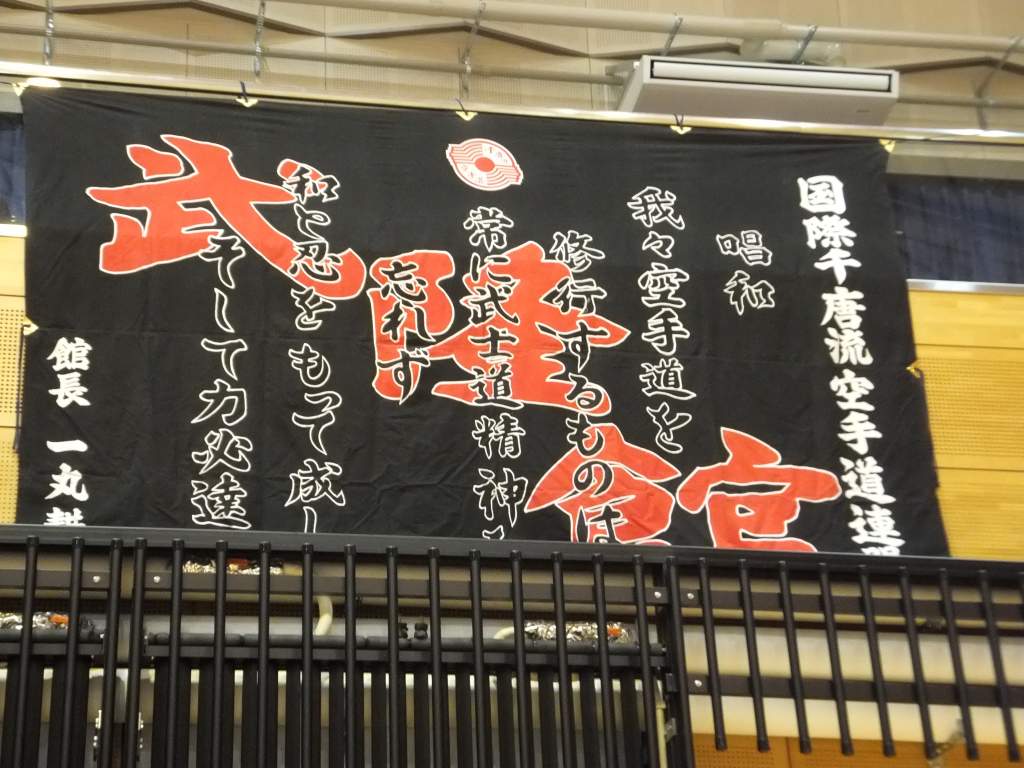 国際千唐流空手道連盟
唱和
我々空手道を
修行するものは
常に武士道精神
忘れず
和と忍をもって成し
そして力必達
武隆館
館長 一丸